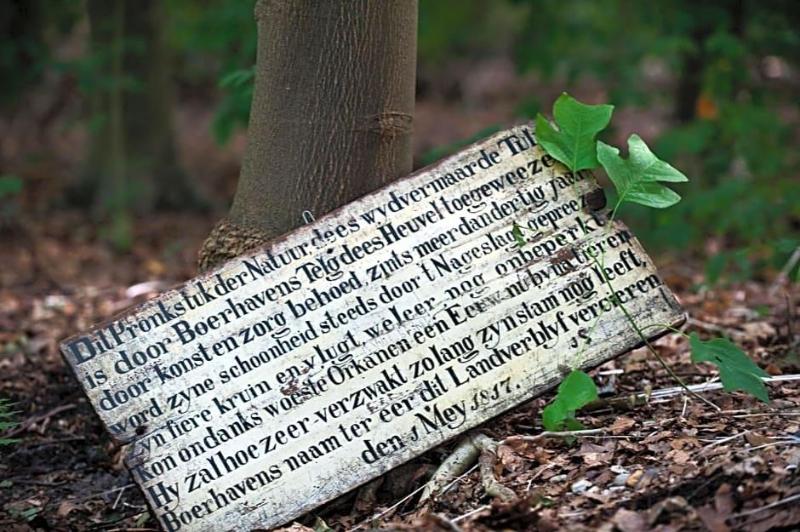 Dit Pronkstuk der Natuur, dees wydvermaarde Tul
is door Boerhavens Telg dees Heuvel toegeweeze
door konst en zorg behoed, zints meer dan dertig jaar
word zyne schoonheid steeds door 't Nageslagt gepreez
zyn fiere kruin en vlugt, weleer nog onbeperkt
kon ondanks woeste Orkanen een Eeuw
Hy zal hoe zeer verzwakt zo lang zyn stam nog leeft,
Boerhavens naam ter eer dit Landverblyf vercieren
den 1 Mey 1817.